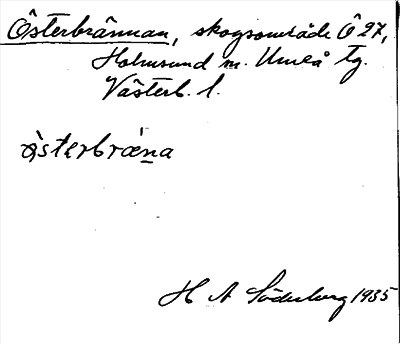 Österbrännan, skogsområde Ö 27,
Holmsund m. Umeå tg.
Västerb. l.
östərbrǽṉa
H A Söderberg 1935